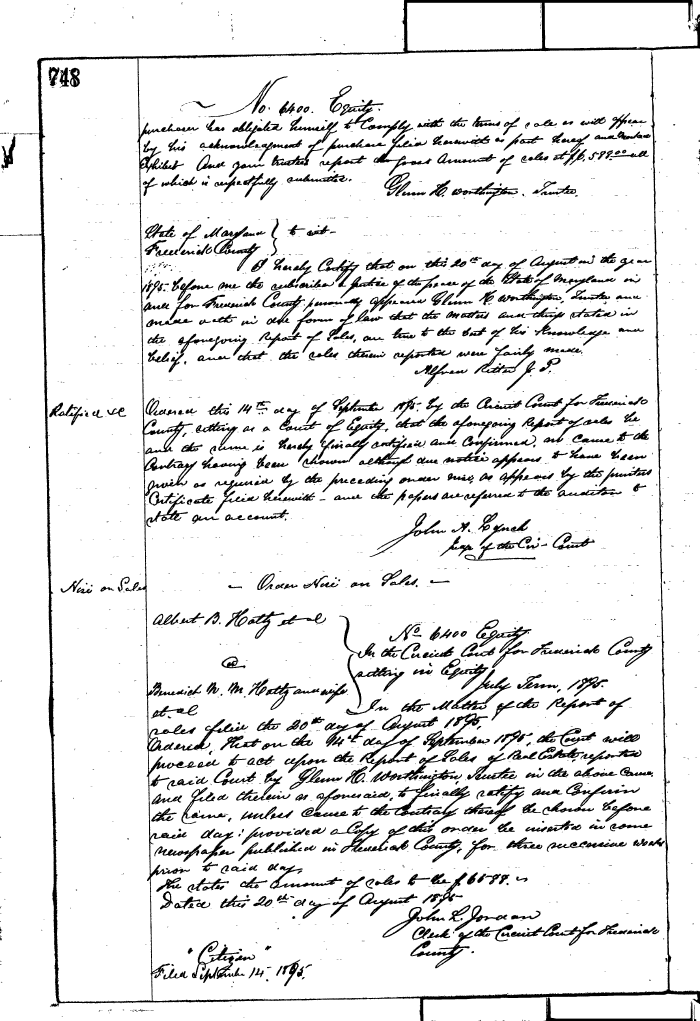 748
No. 6400. Equity.
purchaser has obligated himself to Comply with the terms of sale as will appear
by his acknowledgment of purchase filed herewith as part hereof and marked
Exhibit And your trustee report the gross Amount of sales at $6,588.00 all
of which is respectfully submitted.
Glenn H. Worthington. Trustee.
State of Maryland } to wit
Frederick County
I hereby Certify that on this 20th day of August in the year
1895. before me the subscriber a Justice of the peace of the State of Maryland in
and for Frederick County, personally appeared Glenn H Worthington, Trustee and
made oath in due form of law that the matters and things stated in
the aforegoing Report of Sales, are true to the best of his knowledge and
belief, and that the sales therein reported were fairly made.
Alfred Ritter J. P.
Ratified &c
Ordered this 14th day of September 1895. by the Circuit Court for Frederick
County, sitting as a Court of Equity, that the aforegoing Report of sales be
and the same is hereby finally ratified and Confirmed, no cause to the
Contrary having been shown although due notice appears to have been
given as required by the preceding order nisi, as appears by the printers
Certificate filed herewith - and the papers are referred to the auditor to
state an account.
John A. Lynch
Judge of the Cir- Court
Nisi on Sales
- Order Nisi on Sales. -
Albert B. Hatly et al
No 6400 Equity.
In the Circuit Court for Frederick County
sitting in Equity
July Term, 1895.
Benedick N. M. Hatly and wife
et. al
In the Matter of the Report of
sales filed the 20th day of August 1895.
Ordered, that on the 14th day of September 1895, the Court will
proceed to act upon the Report of Sales of Real Estate, reported
to said Court by Glenn H. Worthington, Trustee in the above Cause,
and filed therein as aforesaid, to finally ratify and Confirm
the same, unless cause to the Contrary thereof be shown before
said day: provided a Copy of this order be inserted in some
newspaper published in Frederick County, for three successive weeks
prior to said day.
The states the amount of sales to be $6588.
Dated this 20th day of August 1895
John L. Jordan
Clerk of the Circuit Court for Frederick
County.
"Citizen"
Filed September 14. 1895.